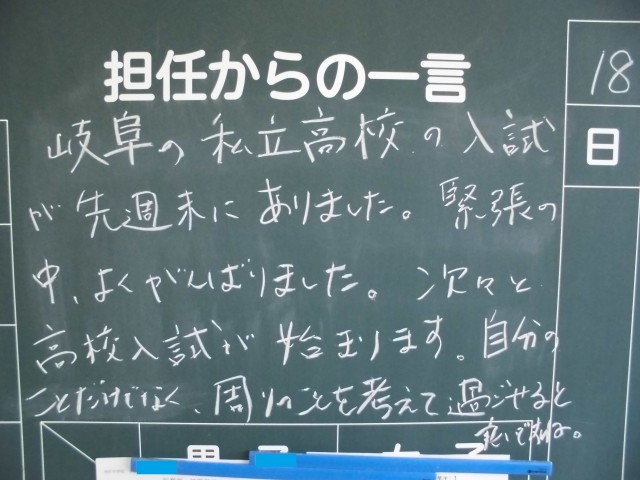 担任からの一言
18
日
岐阜の私立高校の入試
が先週末にありました。緊張の
中、よくがんばりました。次々と
高校入試が始まります。自分の
ことだけでなく、周りのことを考えて過ごせると
良いですね。